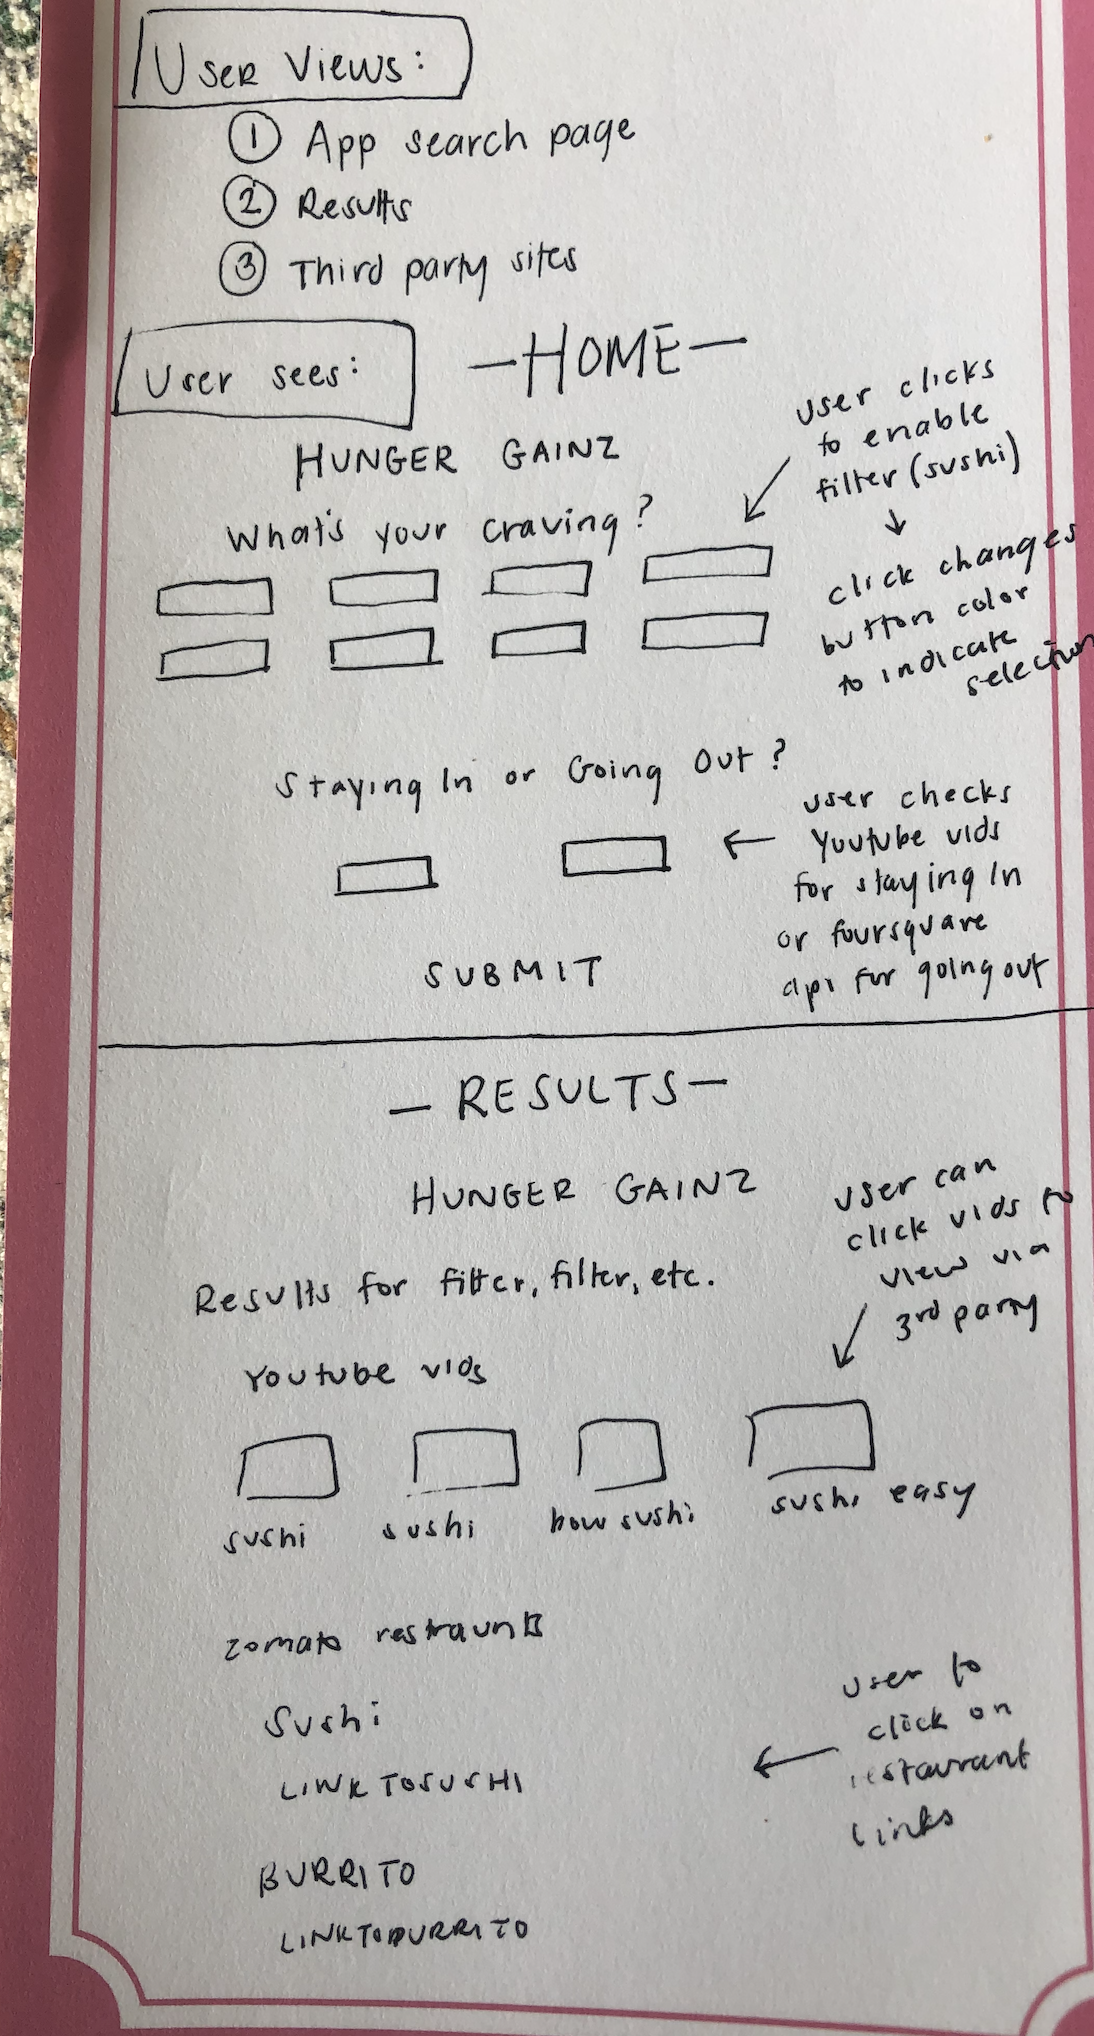 User Views:
① App search page
② Results
③ Third party sites
User sees:
—HOME—
HUNGER GAINZ
What's your craving?
user clicks
to enable
filter (sushi)
click changes
button color
to indicate
selection
Staying In or Going Out?
user checks
Youtube vids
for staying In
or foursquare
api for going out
SUBMIT
— RESULTS —
HUNGER GAINZ
Results for filter, filter, etc.
user can
click vids to
view via
3rd party
Youtube vids
sushi sushi how sushi sushi easy
zomato restraunts
Sushi
LINKTOSUSHI
user to
click on
restaurant
links
BURRITO
LINKTOBURRITO